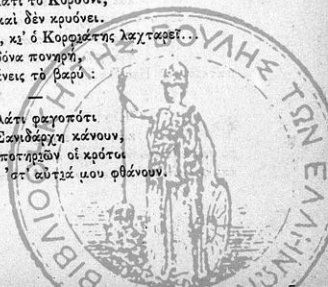 κατὶ τὸ Κορδόνι,
καὶ δὲν κρυόνει.
κι' ὁ Κορφιάτης λαχταρεῖ...
πονηρή,
τὸ βαρύ :
φαγοπότι
Σανιδάρχη κάνουν,
ποτηριῶν οἱ κρότοι
'στ' αὐτιά μου φθάνουν.
ΒΙΒΛΙΟΘΗΚΗ ΤΗΣ ΒΟΥΛΗΣ ΤΩΝ ΕΛΛΗΝΩΝ